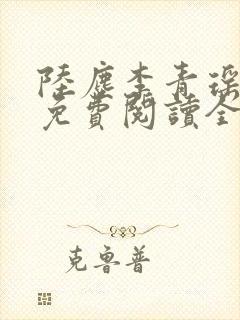 陸塵李青瑤
免費閱讀全
克魯普